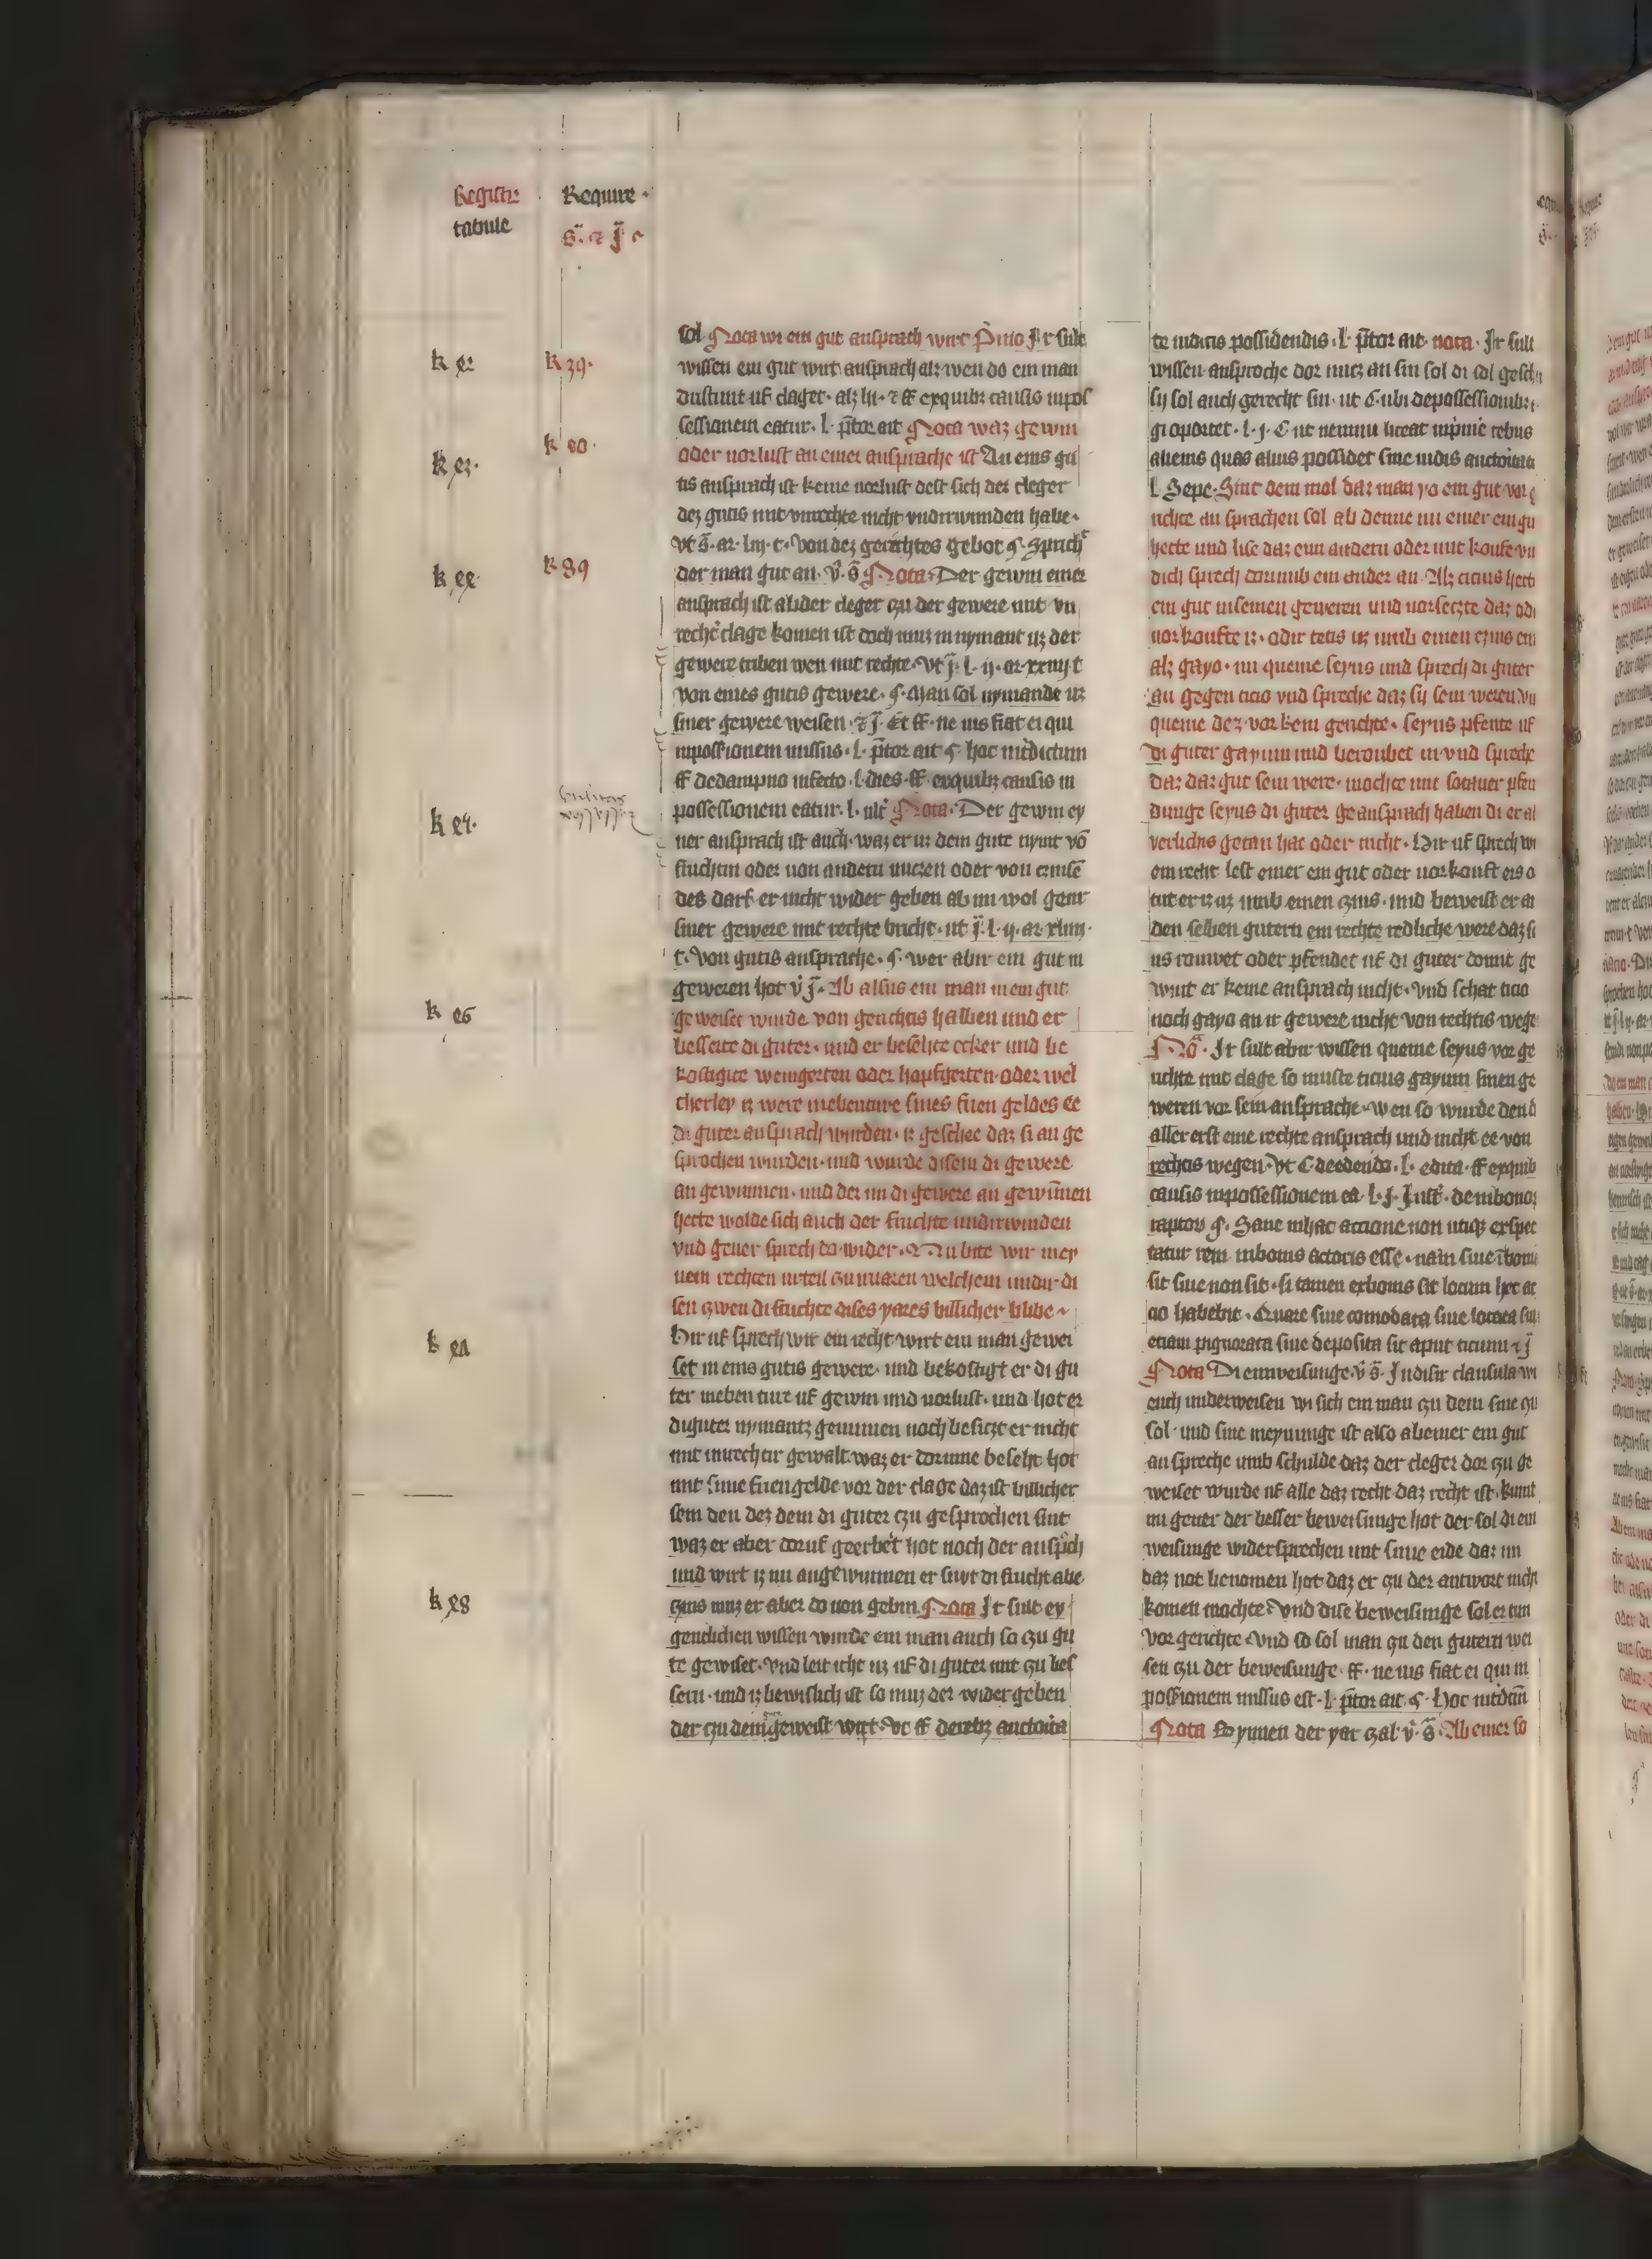 Registr
tabule
Require
sol Nota wi ein gut ansprach wirt Primo Ir sult
wissen ein gut wirt ansprach alz wen do ein man
sessionem eatur. l. pretor ait Nota waz gewin
oder uorlust an einer ansprache ist An eins gu
tis ansprach ist keine uorlust dest sich der cleger
dez gutis mit unrechte nicht undirwinden habe
der man gut an. Nota. Der gewin einer
ansprach ist ab der cleger czu der gewere mit un
rechter clage komen ist doch muz in nymant uz der
gewere triben wen mit rechte. Vt j. l. ij. ar. xxiiij c
von eines gutis gewere. Man sol nymande uz
siner gewere weisen. Et ff. ne uis fiat ei qui
in possessionem missus. l. pretor ait hoc interdictum
ff de dampno infecto. l. dies. ff. ex quibus causis in
possessionem eatur. l. ult Nota. Der gewin ey
ner ansprach ist auch. waz er in dem gute nymt von
fruchtin oder von andern nuczen oder von czinsen
des darf er nicht wider geben ab im wol gent
siner gewere mit rechte bricht. ut j. l. ij. ar. xliiij.
c. Von gutis ansprache. wer abir ein gut in
geweren hot v j. Ab alsus ein man in ein gut
geweiset wurde von gerichtis halben und er
besserte di guter. und er beselite ecker und be
kostigite weingerten oder hopfgerten. oder wel
cherley iz were uf ebenture sines frien geldes ee
di guter ansprach wurden. iz geschee daz si an ge
sprochen wurden. und wurde disem di gewere
an gewunnen. und der im di gewere an gewunnen
hette wolde sich auch der fruchte undirwinden
vnd gener sprech do wider. Nu bite wir mey
nem rechten urteil czu uuazen welchem undir di
sen czwen di fruchte dises yares billicher blibe
Hir uf sprech wir ein recht wirt ein man gewei
set in eins gutis gewere. und bekostigt er di gu
ter uf ebenture uf gewin und uorlust. und hot er
di guter nymantz genumen noch besiczt er nicht
mit unrechtir gewalt. waz er dorinne beseht hot
mit sime frien gelde vor der clage daz ist billicher
sein den dez dem di guter czu gesprochen sint
waz er aber doruf geerbet hot noch der ansprach
und wirt iz im angewunnen er furt di frucht abe
czins muz er aber do von gebin. Nota Ir sult ey
gentlichen wissen wurde ein man auch so czu gu
te gewiset. Vnd leit icht uz uf di guter mit czu bes
sern. und iz bewislich ist so muz der wider geben
der czu dem geweist wirt. Vt ff de rebus auctorita
te iudicis possidendis. l. pretor ait. nota. Ir sult
wissen ansproche dor nucz an sin sol di sol gesch
sy sol auch gerecht sin. ut C ubi de possessionibus
gi oportet. l. j. C ut nemini liceat in pinie rebus
alienis quas alius possidet sine iudis auctorita
l. Sepe. Sint dem mol daz man yo ein gut vor g
richte an sprachen sol ab denne nu einer ein gu
hette und lise daz eim andern oder mit koufe vn
dich sprech dorumb ein ander an. Alz ticius hett
ein gut in seinen geweren und uorseczte daz odi
uorkoufte iz. odir tetis uz umb einen czins ein
alz gayo. nu queme seyus und sprech di guter
an gegen ticio vnd spreche daz sy sein weren. Vn
queme dez vor kein gerichte. seyus pfente uf
di guter gayum und beroubet in vnd spreche
daz daz gut sein were. mochte mit sotaner pfen
dunge seyus di guter geansprach haben di er al
verlichs getan hat oder nicht. Hir uf sprech wi
ein recht lest einer ein gut oder uorkouft er is o
tut er iz uz umb einen czins. und beweist er an
den selben gutern ein rechte redliche were daz si
us rouwet oder pfendet uf di guter domit ge
wint er keine ansprach nicht. Vnd schat ticio
noch gayo an ir gewere nicht von rechtis wege
Ir sult abir wissen queme seyus vor ge
richte mit clage so muste ticius gayum sinen ge
weren vor sein ansprache. wen so wurde den d
aller erst eine rechte ansprach und nicht ee von
rechtis wegen. Vt C de edendo. l. edita. ff ex quib
causis in possessionem ea. l. j. Inst. de ui bonor
raptor. Sane in hac actione non utique exspec
tatur rem in bonis actoris esse. nam siue in bonis
sit siue non sit. si tamen ex bonis sit locum hec ac
cio habebit. Quare siue comodata siue locata siu
etiam pignorata siue deposita sit aput ticium
Nota Di einweisunge. In disir clausula wi
euch underweisen wi sich ein man czu dem sine czi
sol. und sine meynunge ist also ab einer ein gut
an spreche umb schulde daz der cleger dor czu ge
weiset wurde uf alle daz recht daz recht ist. kumt
nu gener der besser beweisunge hot der sol di ein
weisunge widersprechen mit sime eide daz im
daz not benomen hot daz er czu der antwort nicht
komen mochte. Vnd dise beweisunge sol er tun
vor gerichte. Vnd so sol man czu den gutern wei
sen czu der beweisunge. ff. ne uis fiat ei qui in
possessionem missus est. l. pretor ait. Hoc interdictum
Nota Bynnen der yar czal. Ab einer so